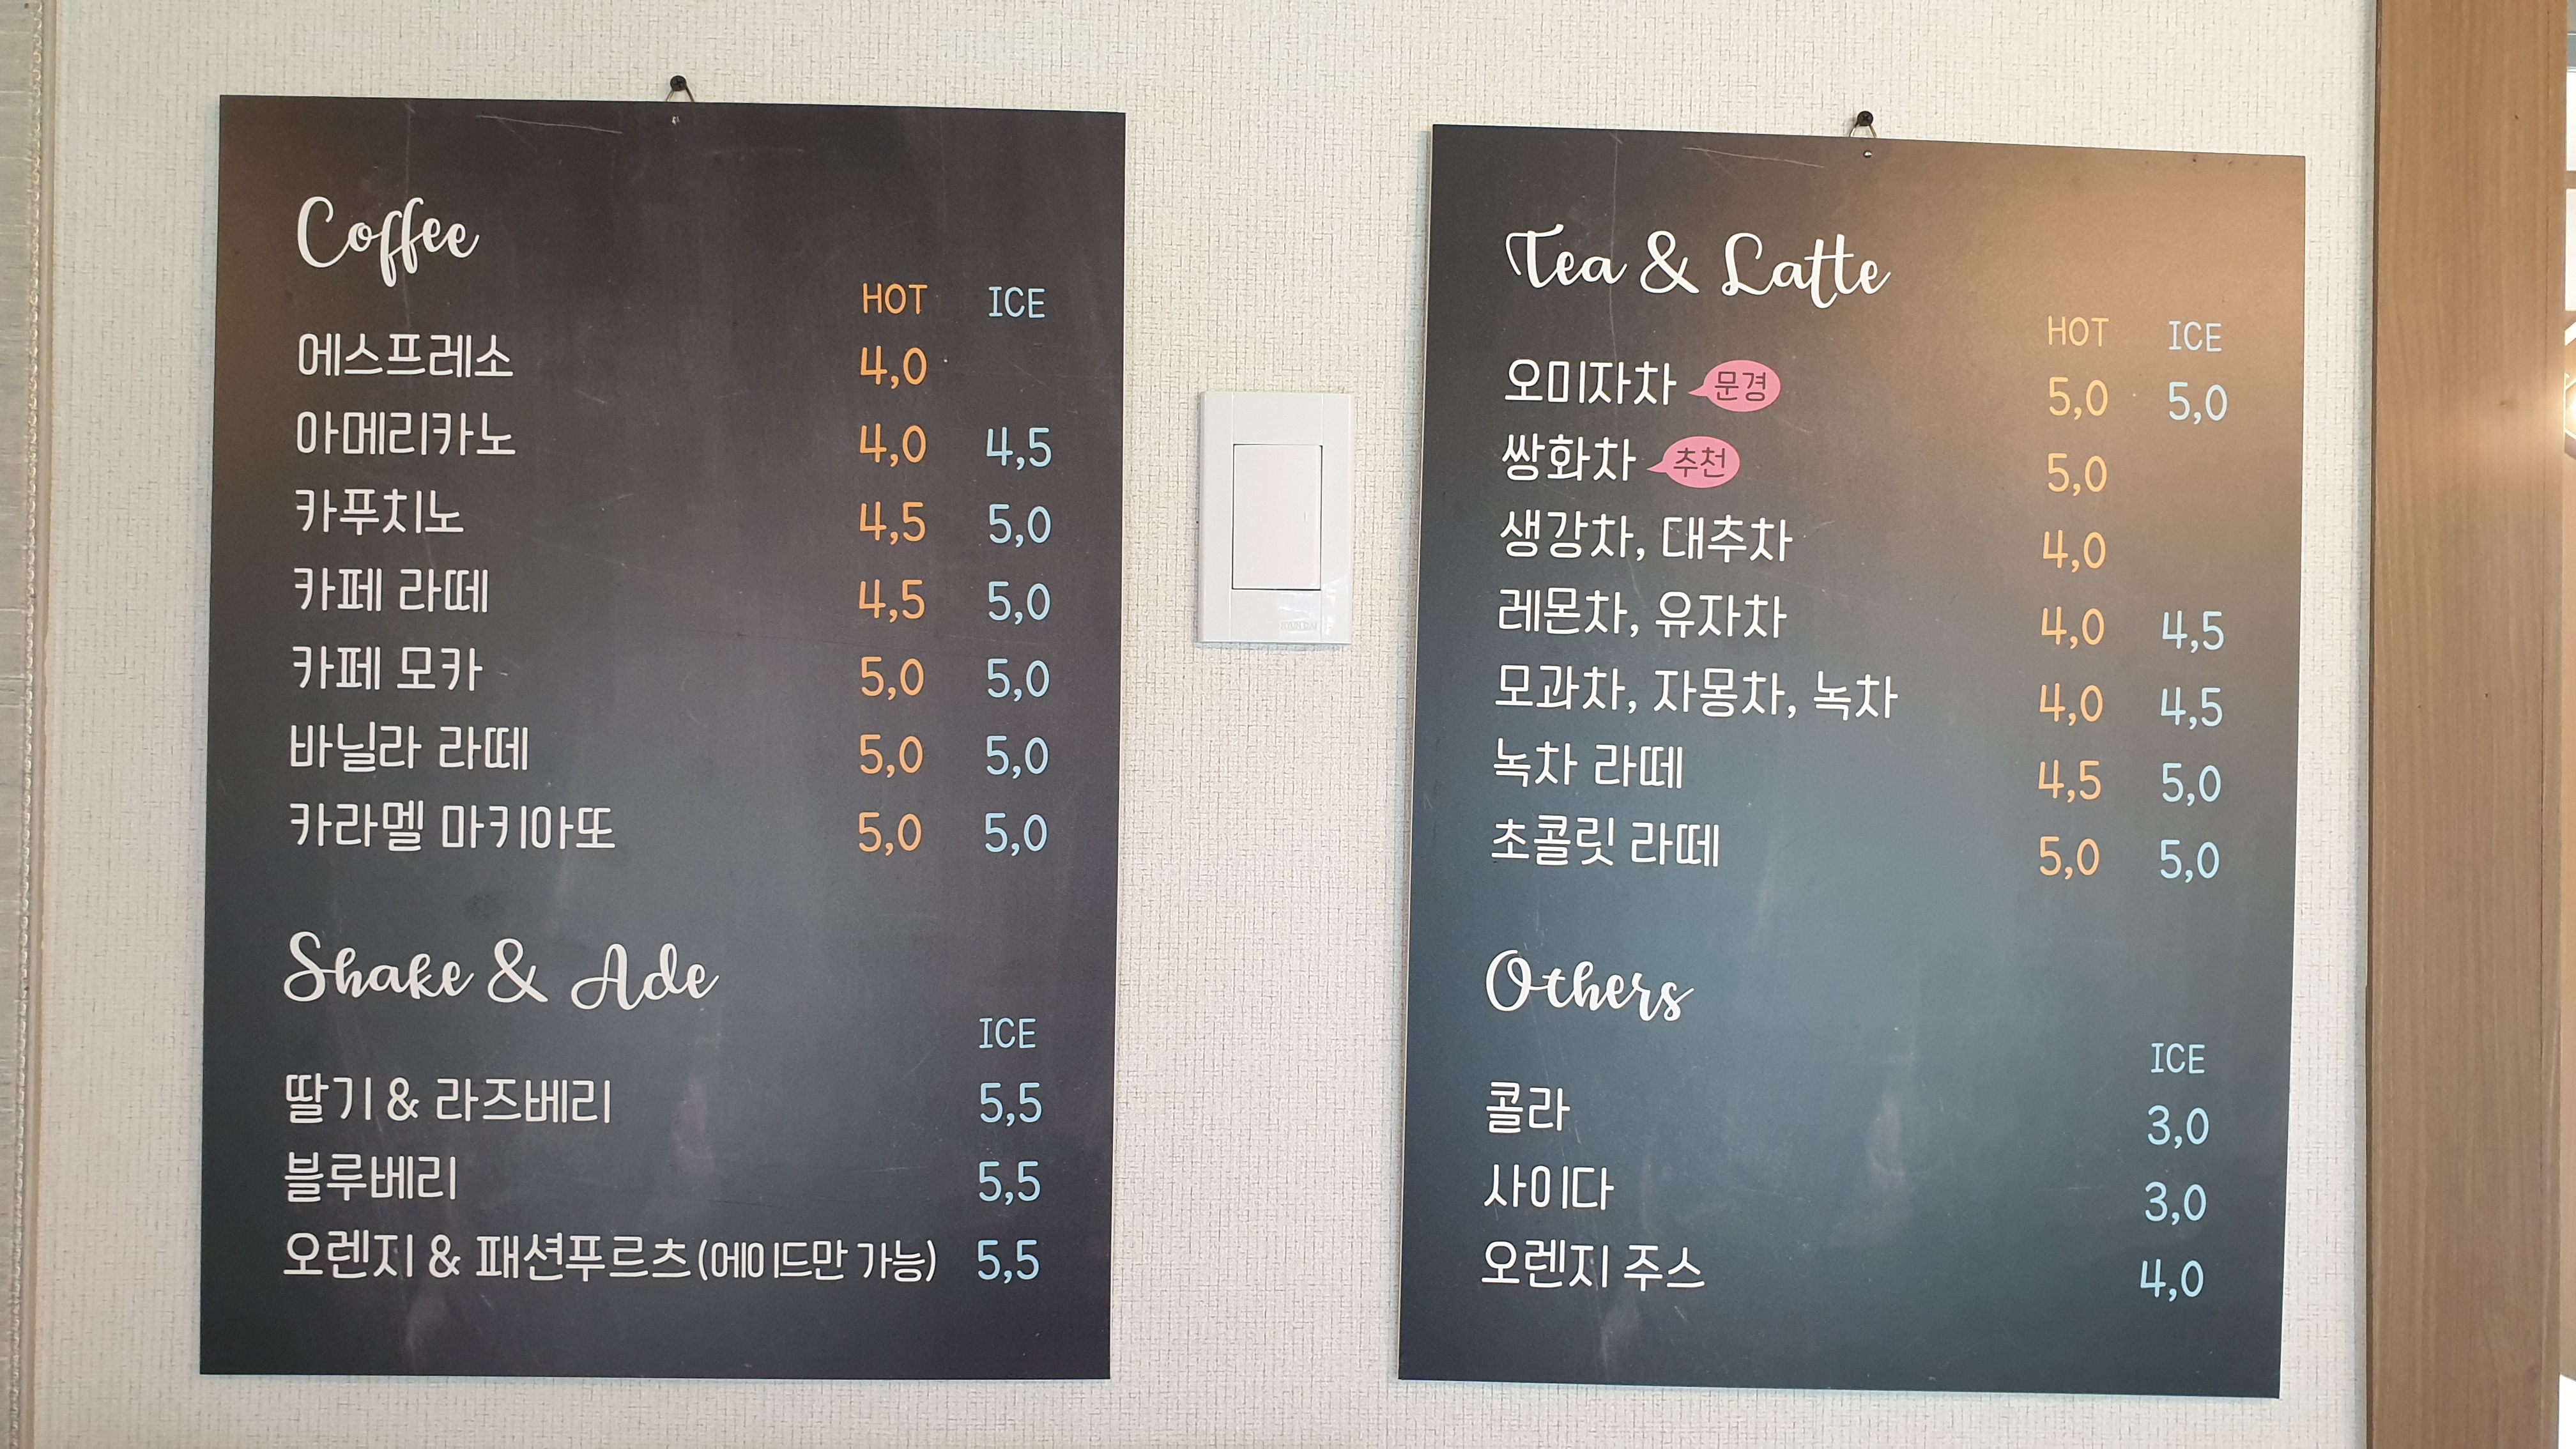 Coffee
HOT ICE
에스프레소 4,0
아메리카노 4,0 4,5
카푸치노 4,5 5,0
카페 라떼 4,5 5,0
카페 모카 5,0 5,0
바닐라 라떼 5,0 5,0
카라멜 마키아또 5,0 5,0
Shake & Ade
ICE
딸기 & 라즈베리 5,5
블루베리 5,5
오렌지 & 패션푸르츠 (에이드만 가능) 5,5
Tea & Latte
HOT ICE
오미자차 문경 5,0 5,0
쌍화차 추천 5,0
생강차, 대추차 4,0
레몬차, 유자차 4,0 4,5
모과차, 자몽차, 녹차 4,0 4,5
녹차 라떼 4,5 5,0
초콜릿 라떼 5,0 5,0
Others
ICE
콜라 3,0
사이다 3,0
오렌지 주스 4,0